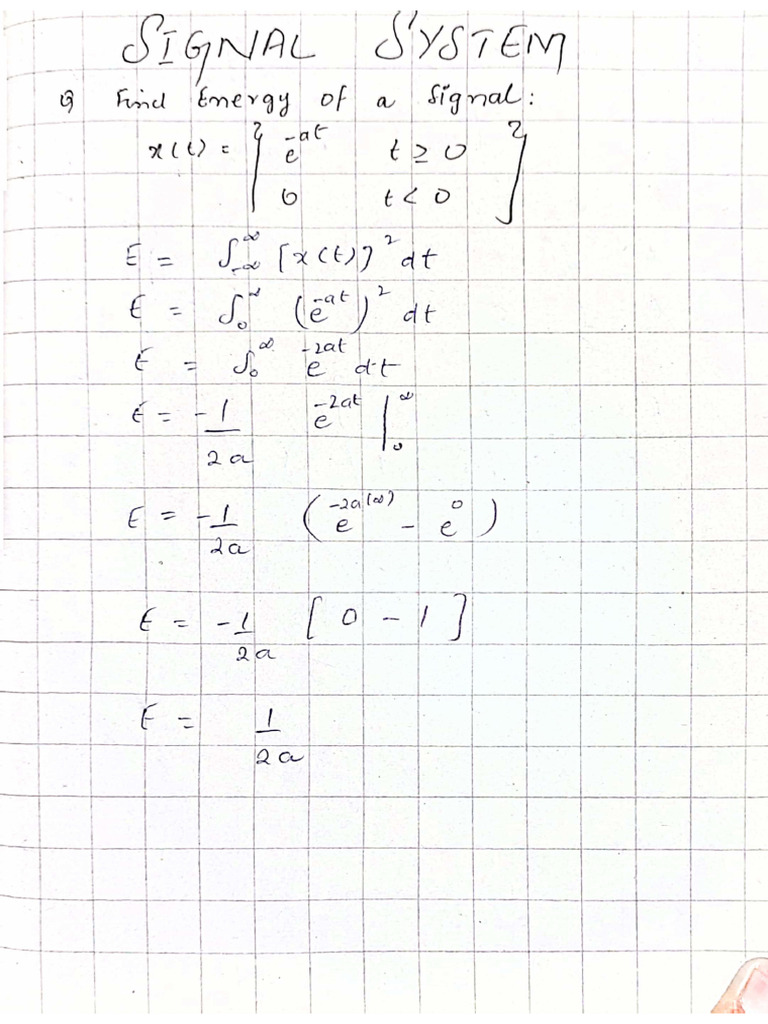 SIGNAL SYSTEM
Q Find Energy of a signal:
x(t) = { e^{-at} t ≥ 0
0 t < 0 }
E = ∫_{-∞}^{∞} [x(t)]^2 dt
E = ∫_0^∞ (e^{-at})^2 dt
E = ∫_0^∞ e^{-2at} dt
E = -1/2a e^{-2at} |_0^∞
E = -1/2a (e^{-2a(∞)} - e^0)
E = -1/2a [0 - 1]
E = 1/2a